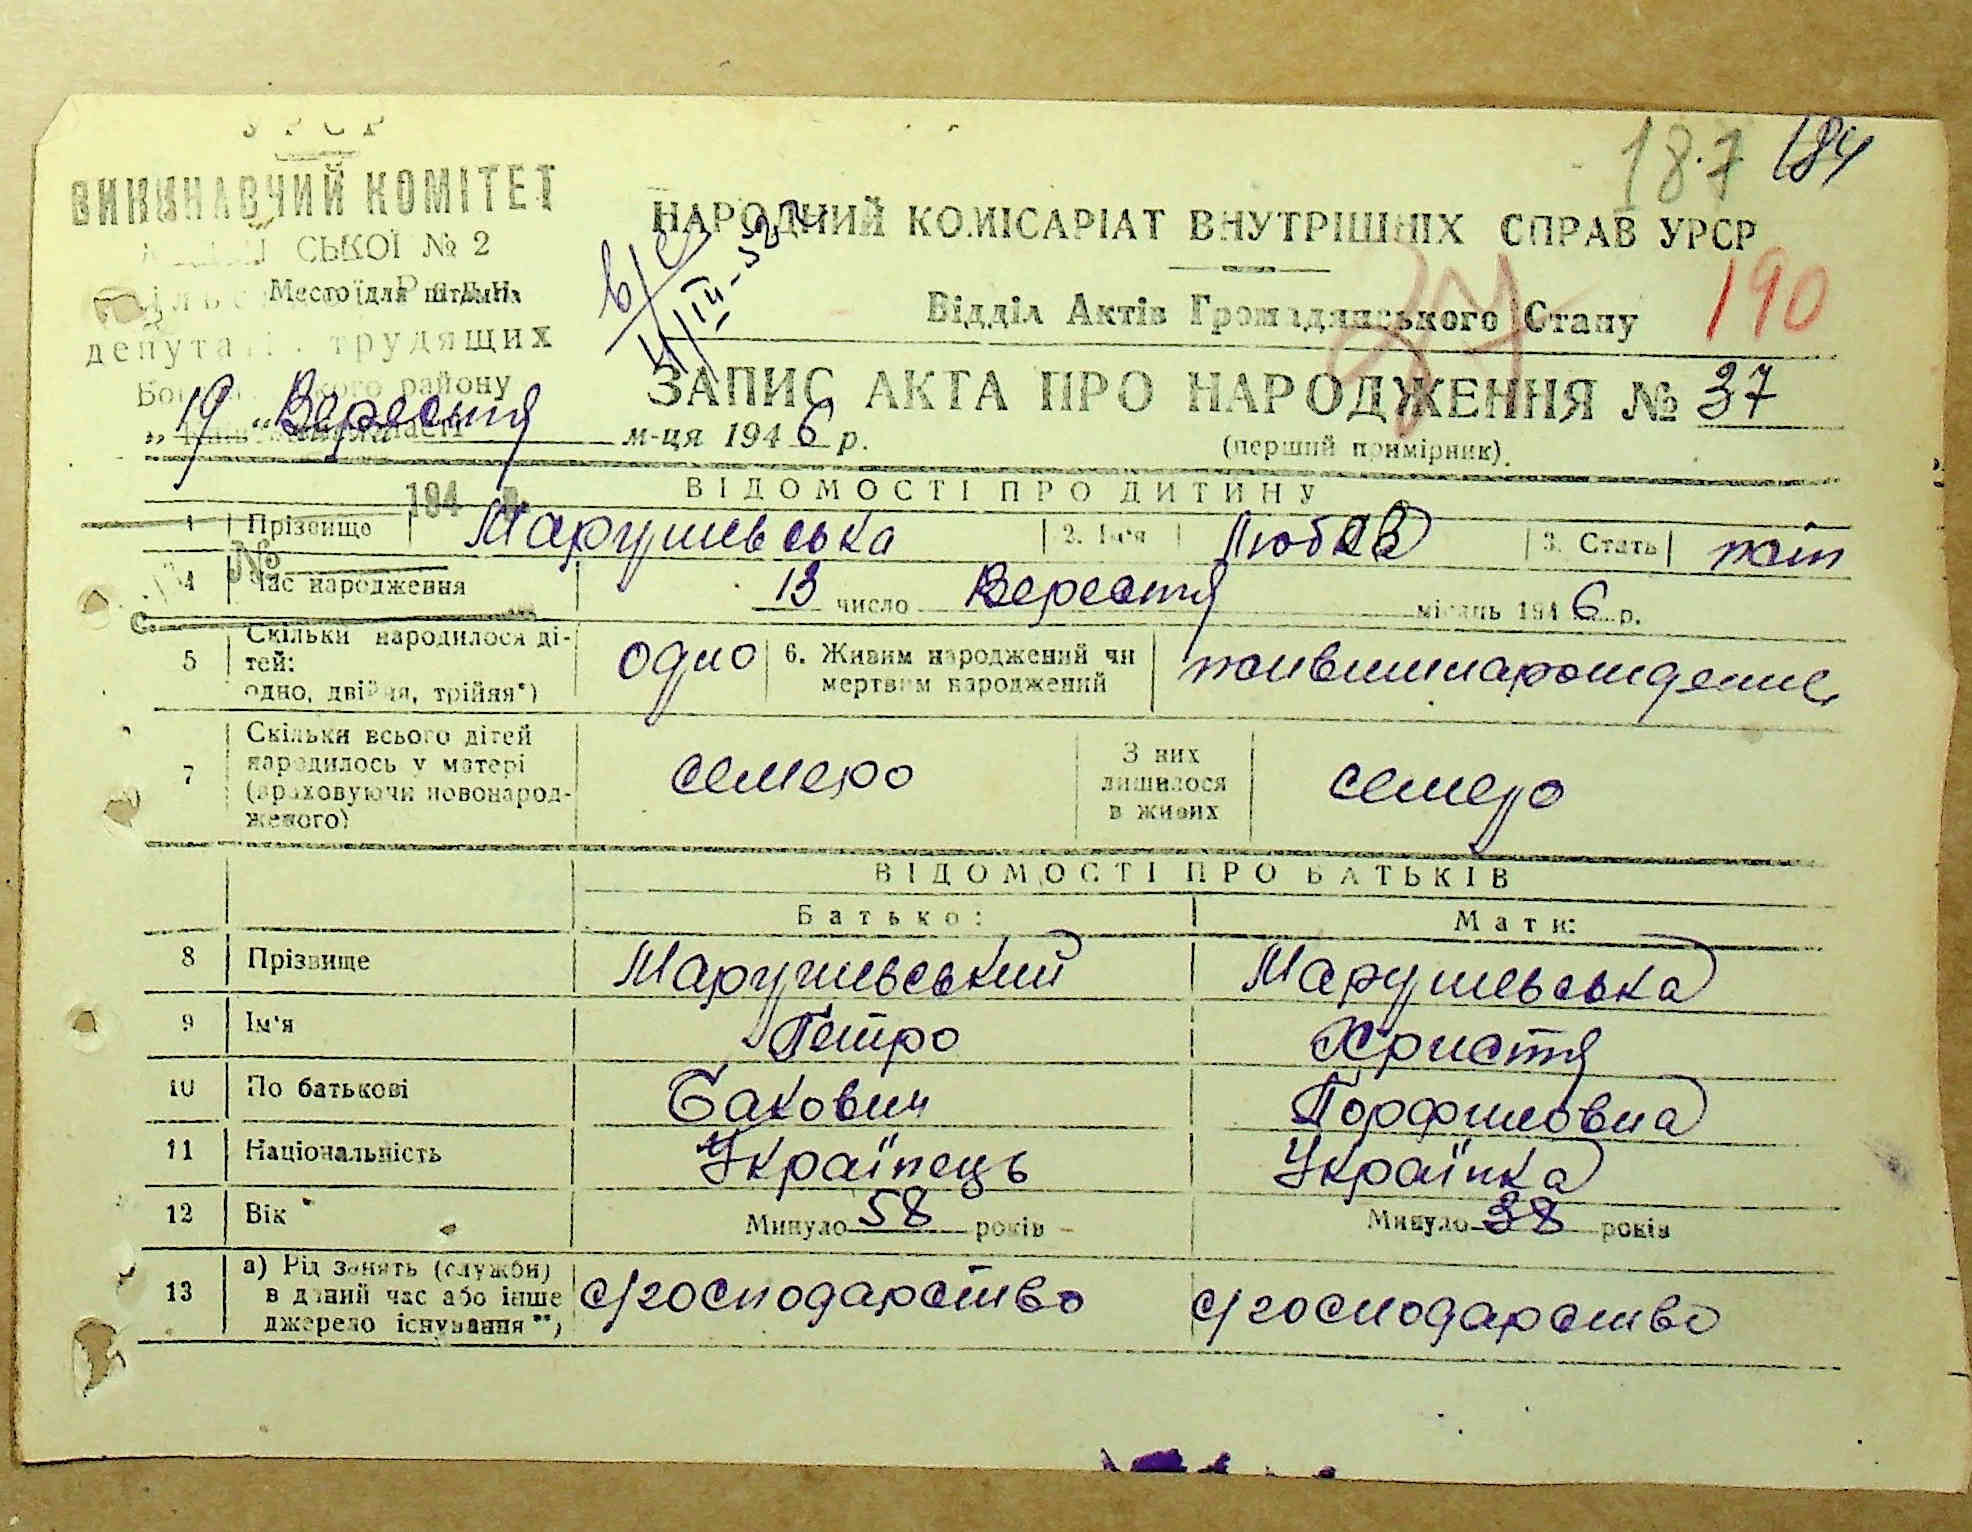 УРСР
ВИКОНАВЧИЙ КОМІТЕТ
СЬКОЇ № 2
Место для штампа
депутатів трудящих
району
187 184
НАРОДНИЙ КОМІСАРІАТ ВНУТРІШНІХ СПРАВ УРСР
190
Відділ Актів Громадянського Стану
ЗАПИС АКТА ПРО НАРОДЖЕННЯ № 37
(перший примірник).
„19" Вересня м-ця 1946 р.
194 р.
№
ВІДОМОСТІ ПРО ДИТИНУ
1 Прізвище Марушевська 2. Ім'я Любов 3. Стать жін
4 Час народження 13 число Вересня місяць 1946 р.
5 Скільки народилося ді-
тей:
одно, двійня, трійня*)
одно
6. Живим народжений чи
мертвим народжений
7 Скільки всього дітей
народилось у матері
(враховуючи новонарод-
женого)
семеро
З них
лишилося
в живих
семеро
ВІДОМОСТІ ПРО БАТЬКІВ
Батько: Мати:
8 Прізвище Марушевський Марушевська
9 Ім'я Петро Христя
10 По батькові
11 Національність Українець Українка
12 Вік Минуло 58 років Минуло 38 років
13 а) Рід занять (служби)
в даний час або інше
джерело існування **)
с/господарство с/господарство